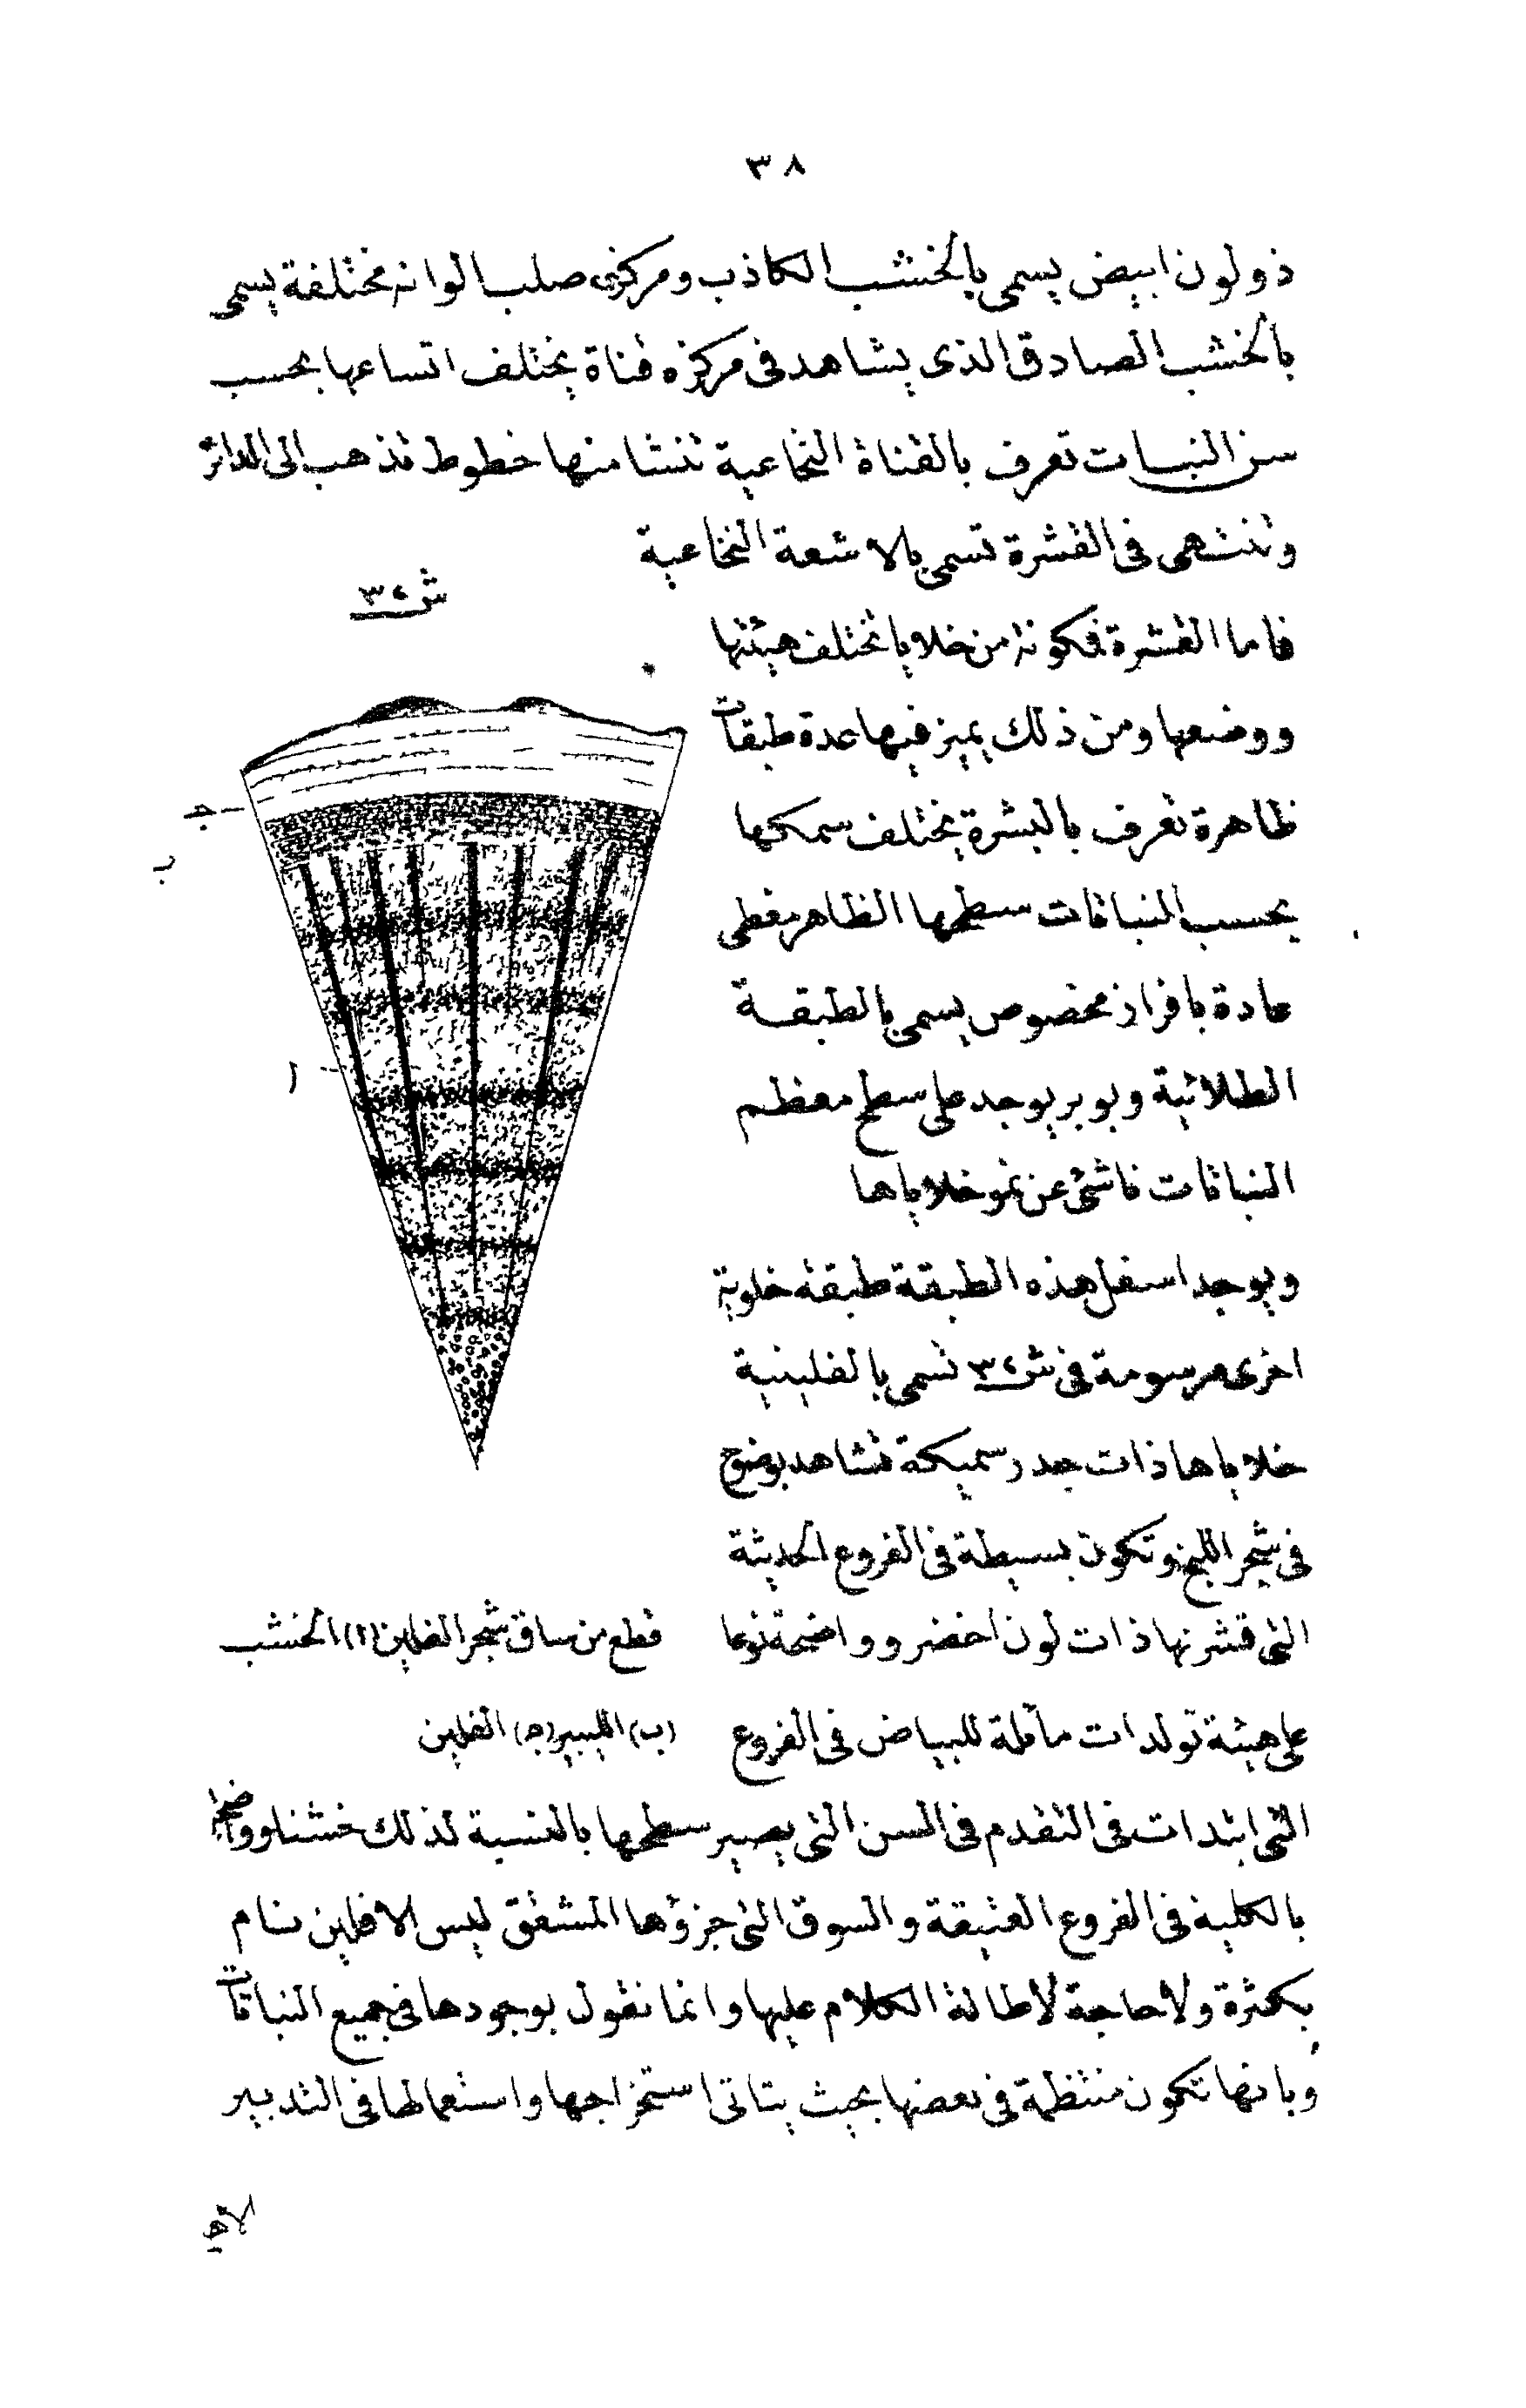 ٣٨
ذو لون ابيض يسمى بالخشب الكاذب ومركزى صلب الوانه مختلفة يسمى
بالخشب الصادق الذى يشاهد فى مركزه قناة يختلف اتساعها بحسب
سن النبات تعرف بالقناة النخاعية تنشا منها خطوط تذهب الى الدائر
وتنتهى فى القشرة تسمى بالاشعة النخاعية
ش ٣٢
فاما القشرة فمكونة من خلايا تختلف هيئتها
ووضعها ومن ذلك يميز فيها عدة طبقات
ظاهرة تعرف بالبشرة يختلف سمكها
بحسب النباتات سطحها الظاهر مغطى
عادة بافراز مخصوص يسمى بالطبقة
الطلائية وبوبر يوجد على سطح معظم
النباتات ناشئ عن نمو خلاياها
ويوجد اسفل هذه الطبقة طبقة خلوية
اخرى مرسومة فى ش ٣٢ تسمى بالفلينية
خلاياها ذات جدر سميكة تشاهد بوضوح
فى شجر اللبخ وتكون بسيطة فى الفروع الحديثة
التى قشرتها ذات لون اخضر وواضحة نوعا
على هيئة تولدات مائلة للبياض فى الفروع
جـ
ب
ا
قطع من ساق شجر الفلين (ا) الخشب
(ب) الليبير (جـ) الفلين
التى ابتدات فى التقدم فى السن التى يصير سطحها بالنسبة لذلك خشنا وواضحا
بالكلية فى الفروع العتيقة والسوق التى جزؤها المشقق ليس الا فلين نام
بكثرة ولا حاجة لاطالة الكلام عليها وانما نقول بوجودها فى جميع النباتات
وبانها تكون منتظمة فى بعضها بحيث يتاتى استخراجها واستعمالها فى التدبير